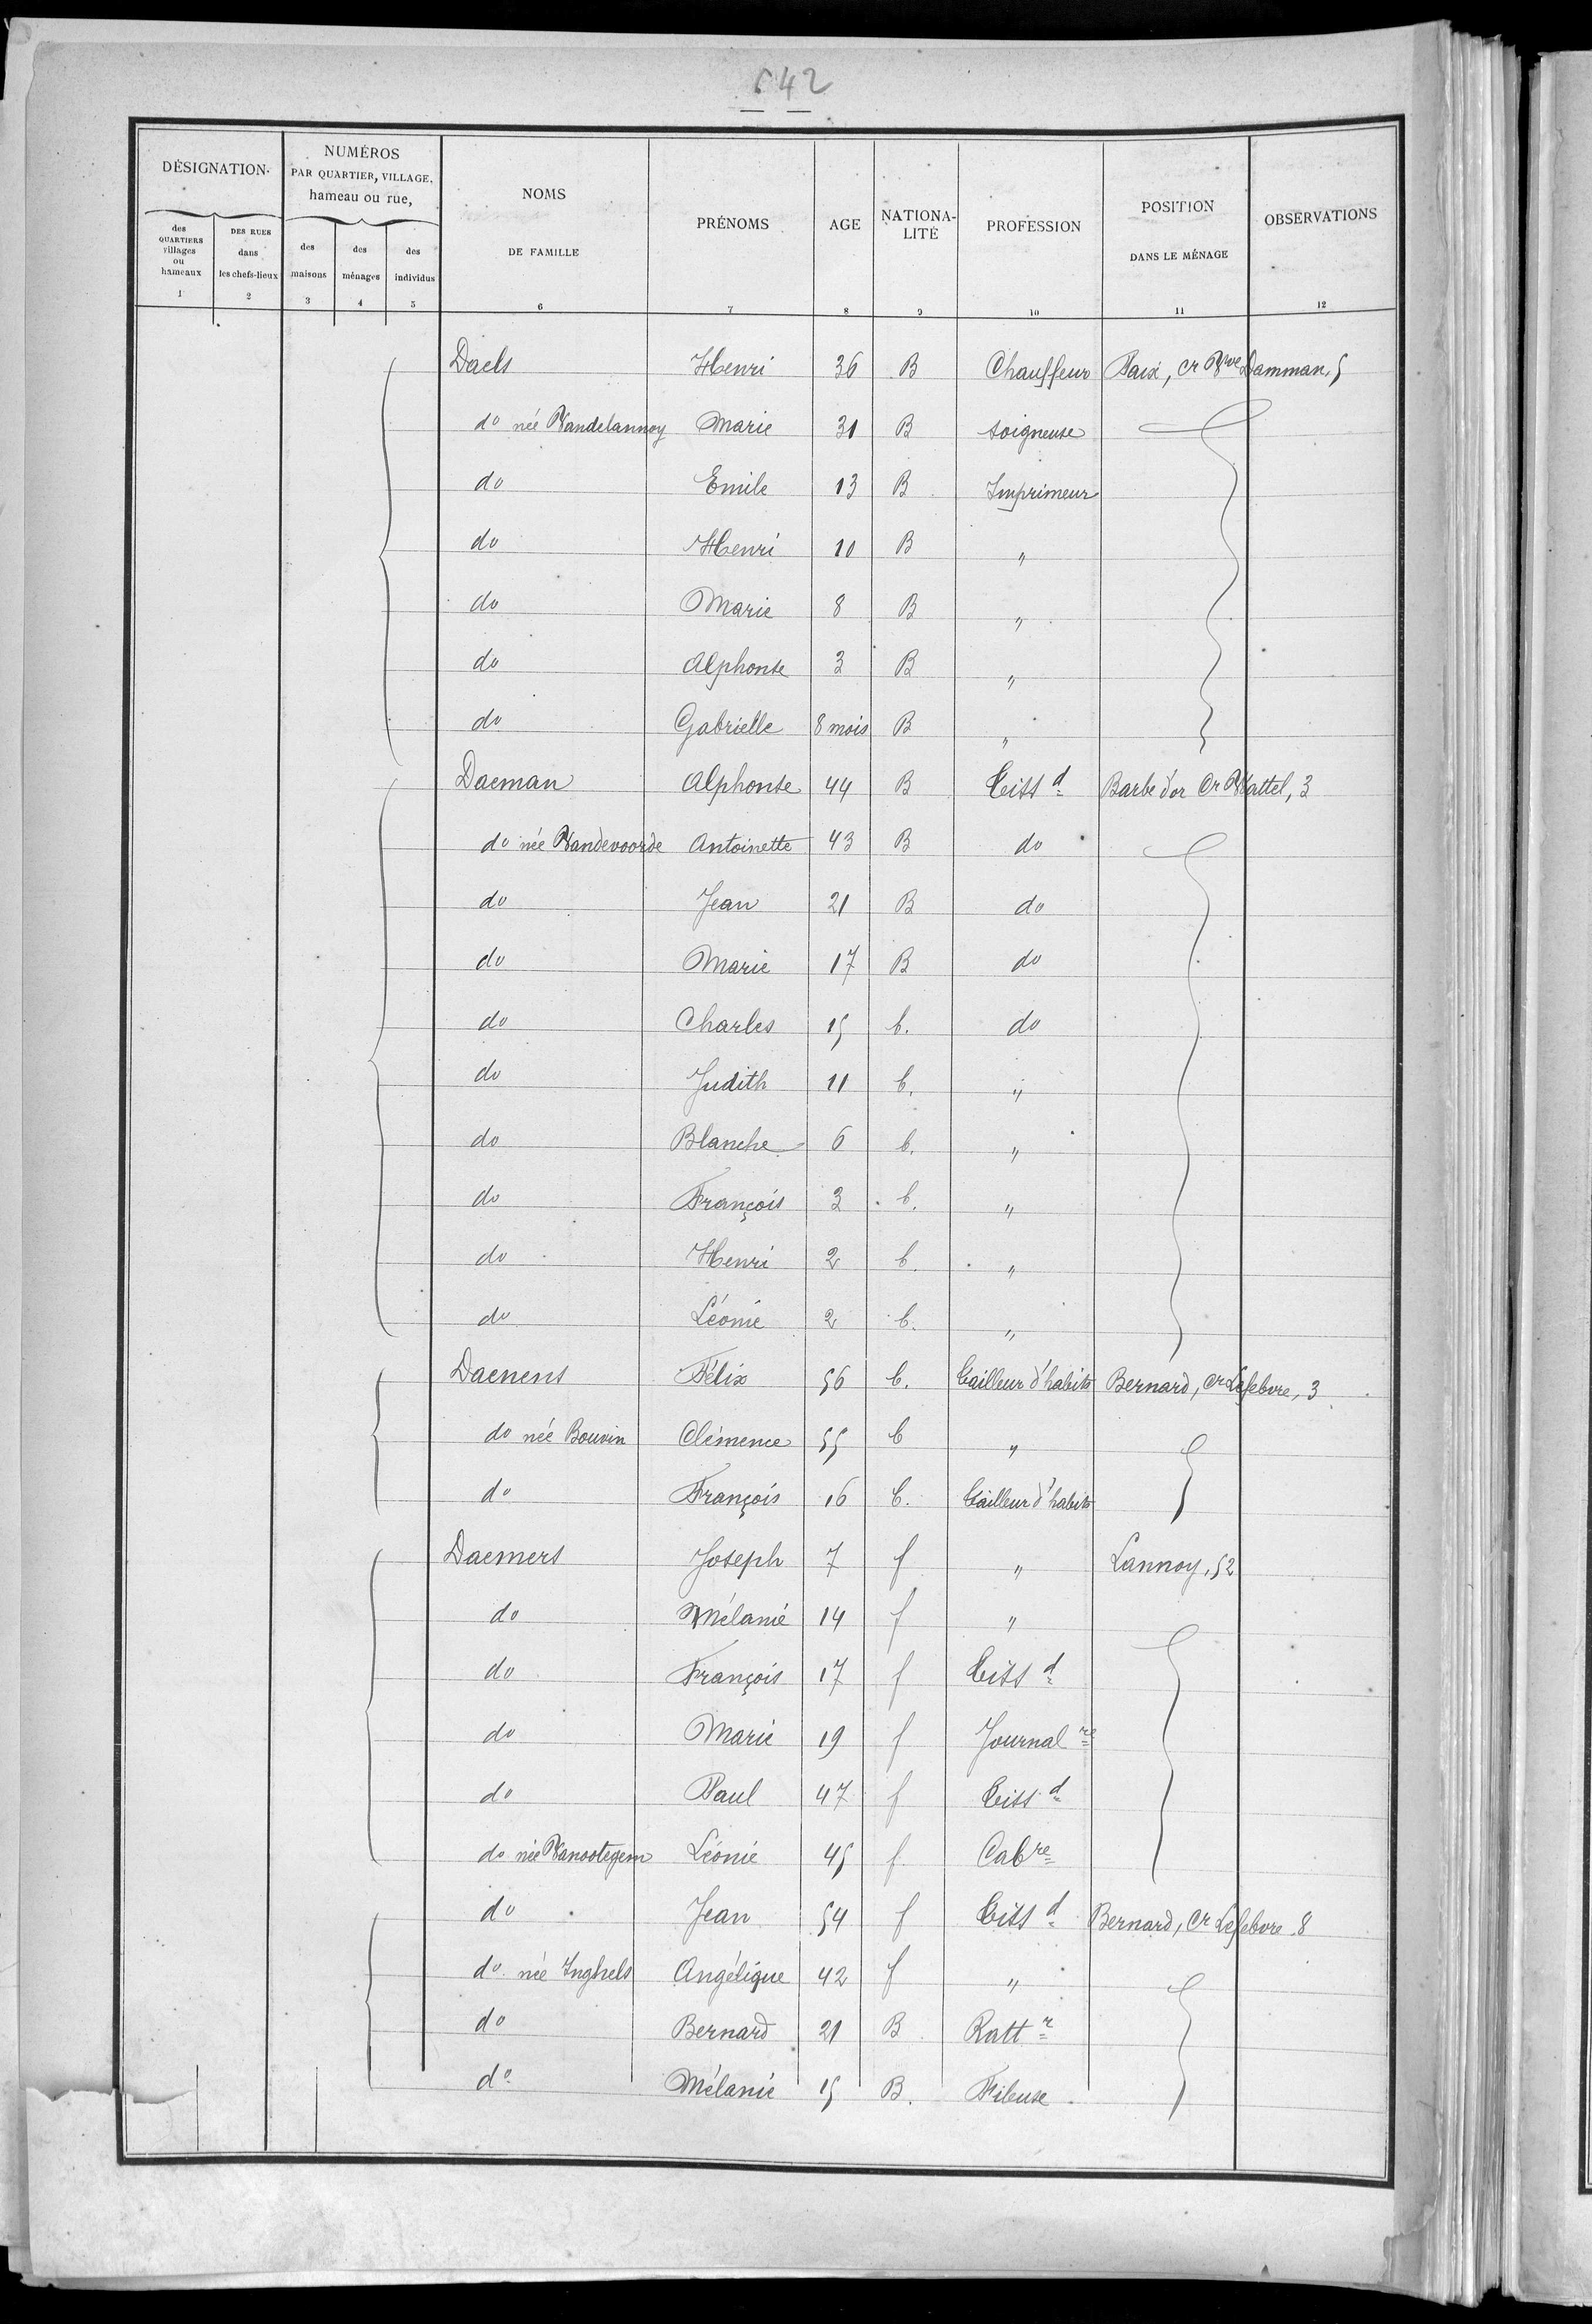 642
DÉSIGNATION
NUMÉROS
PAR QUARTIER, VILLAGE,
hameau ou rue,
NOMS
DE FAMILLE
PRÉNOMS
AGE
NATIONA-
LITÉ
PROFESSION
POSITION
DANS LE MÉNAGE
OBSERVATIONS
des QUARTIERS villages ou hameaux
DES RUES dans les chefs-lieux
des maisons
des ménages
des individus
1 2 3 4 5 6 7 8 9 10 11 12
Daels Henri 36 B Chauffeur Paix, cr Vve Damman, 5
do née Vandelannoy Marie 31 B soigneuse
do Emile 13 B Imprimeur
do Henri 10 B "
do Marie 8 B "
do Alphonse 3 B "
do Gabrielle 8 mois B "
Daeman Alphonse 44 B Tissd Barbe d'or Cr Wattel, 3
do née Vandevoorde Antoinette 43 B do
do Jean 21 B do
do Marie 17 B do
do Charles 15 b. do
do Judith 11 b. "
do Blanche 6 b. "
do François 3 b. "
do Henri 2 b. "
do Léonie 2 b. "
Daenens Félix 56 b. Tailleur d'habits Bernard, Cr Lefebvre, 3
do née Bouvin Clémence 55 b "
do François 16 b. Tailleur d'habits
Daemers Joseph 7 f " Lannoy, 52
do Mélanie 14 f "
do François 17 f Tissd
do Marie 19 f Journalre
do Paul 47 f Tissd
do née Vanootegem Léonie 45 f Cabre
do Jean 54 f Tissd Bernard, Cr Lefebvre 8
do née Inghels Angélique 42 f "
do Bernard 21 B Rattr
do Mélanie 15 B. Fileuse